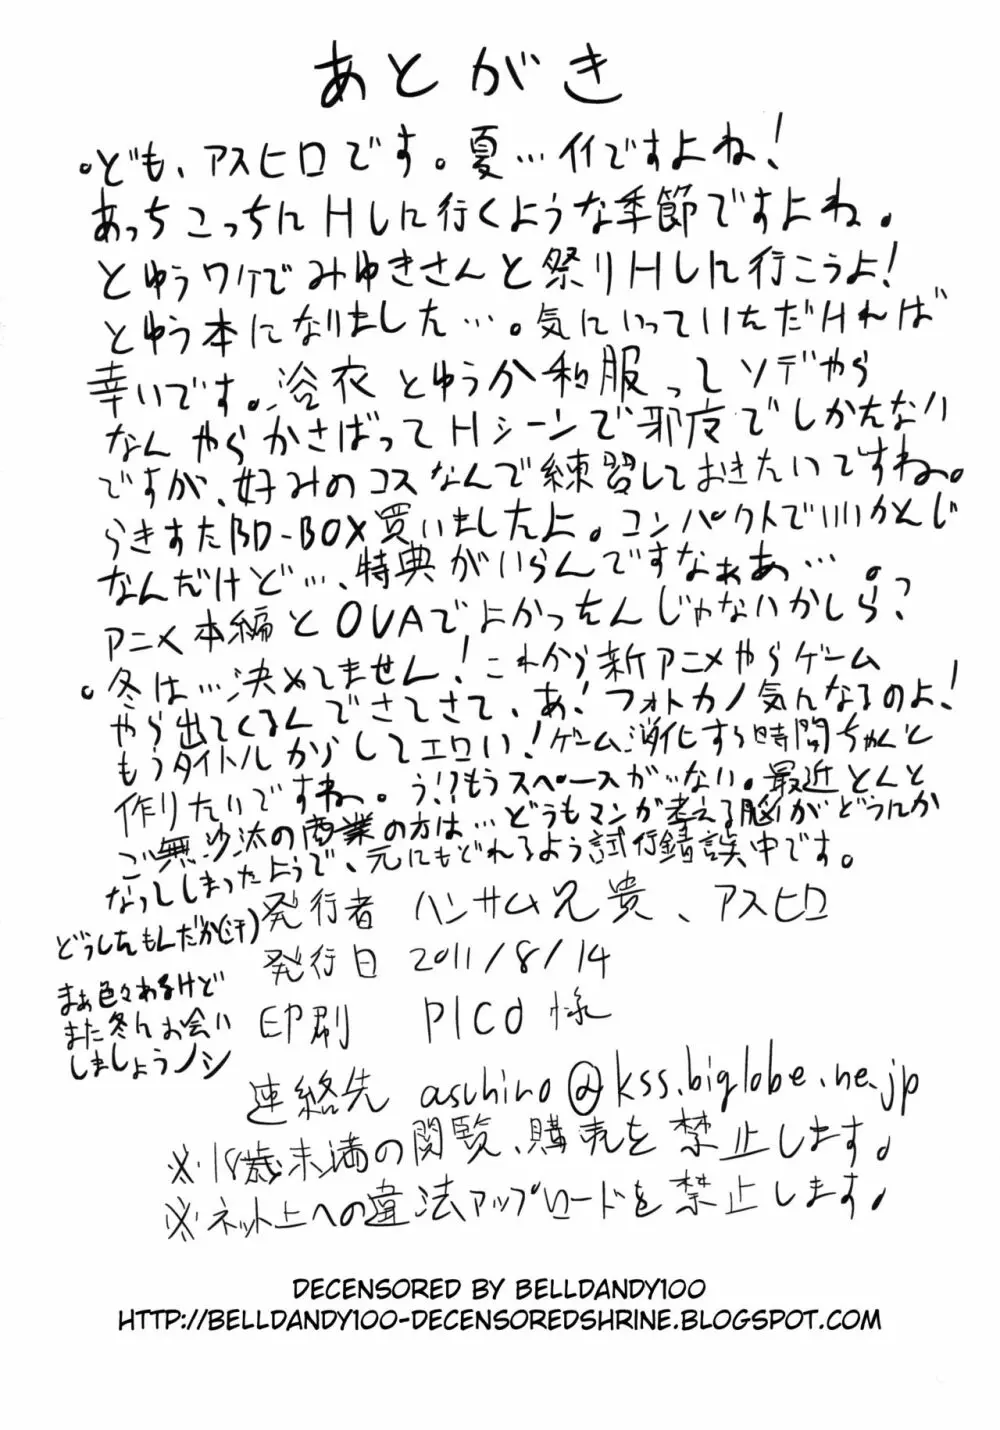 あとがき
。ども、アスヒロです。夏…イイですよね!
あっちこっちにHしに行くような季節ですよね。
とゆうワケでみゆきさんと祭りHしに行こうよ!
とゆう本になりました…。気にいっていただければ
幸いです。浴衣とゆうか和服ってソデやら
なんやらかさばってHシーンで邪広でしかたない
ですが、好みのコスなんで練習しておきたいですね。
らきすたBD-BOX買いましたよ。コンパクトでいいかんじ
なんだけど…、特典がいらんですなぁあ…。
アニメ本編とOVAでよかったんじゃないかしら?
。冬は…決めてません!これから新アニメやらゲーム
やら出てくるんでさてさて、あ!フォトカノ気んなるのよ!
もうタイトルからしてエロい!ゲーム消化する時間ちゃんと
作りたいですね。う!?もうスペースが…ない。最近とんと
ご無沙汰の商業の方は…どうもマンが考える脳がどうにか
なってしまったようで、元にもどれるよう試行錯誤中です。
どうしたもんだか(汗)
まぁ色々あるけど
また冬にお会い
しましょうノシ
発行者 ハンサム兄貴、アスヒロ
発行日 2011/8/14
印刷 PICO様
連絡先 aschino@kss.biglobe.ne.jp
※18歳未満の閲覧、購売を禁止します。
※ネット上への違法アップロードを禁止します。
DECENSORED BY BELLDANDY100
HTTP://BELLDANDY100-DECENSOREDSHRINE.BLOGSPOT.COM